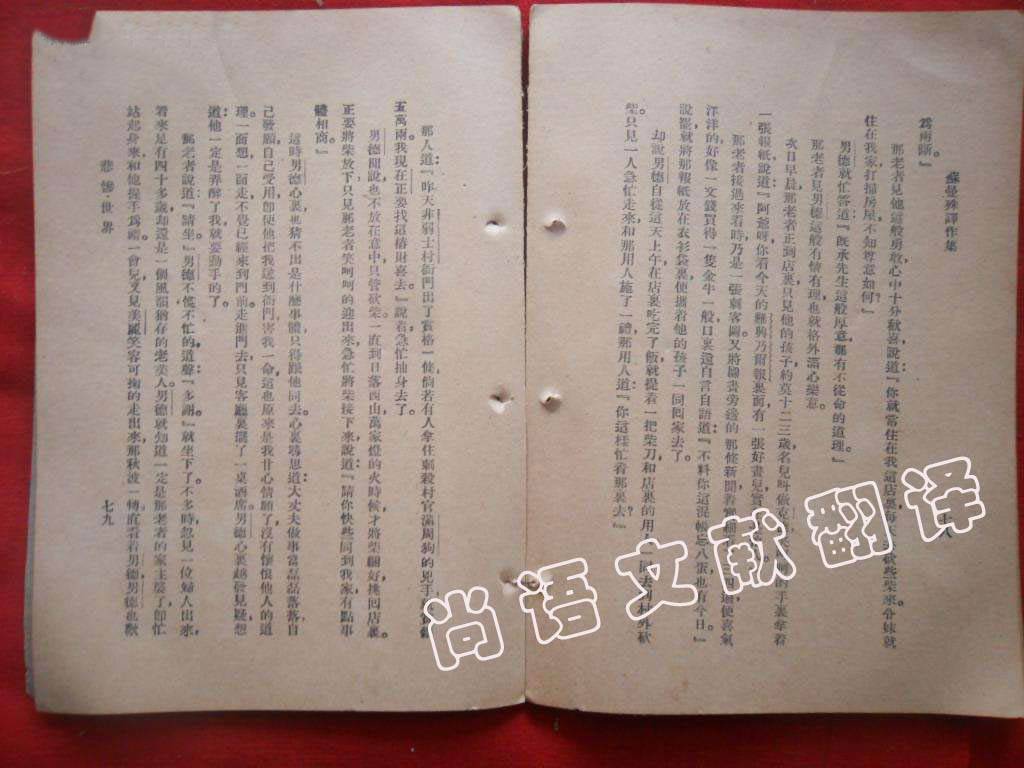 蘇曼殊譯作集
為兩斷。』
那老者見他這般勇敢心中十分歡喜說道『你就當住在我這店裏每
砍些柴來分錶就
住在我家打掃房屋不知尊意如何』
男德就忙答道『旣承先生這般厚意那有不從命的道理』
那老者見男德這般有情有理也就格外當心樂意
次日早晨那老者正到店裏只見他的孩子約莫十二三歲名兒叫做克
的手裏拿着
一張報紙說道『阿爺呀你看今天的難興乃爾報裏面有一張好畫兒實
那老者接過來看時乃是一張刺客圖又將圖畫旁邊的那條新聞看
三四
便喜氣
洋洋的好像一文錢買得一隻金牛一般口裏還自言自語道『不料你這混帳忘八蛋也有今日』
說罷就將那報紙放在衣衫袋裏便攜着他的孩子一同回家去了。
却說男德自從這天上午在店裏吃完了飯就提着一把柴刀和店裏的用人一同去到村外砍
柴。只見一人急忙走來和那用人施了一禮那用人道『你這樣忙着那裏去』
那人道『昨天非弱士村衙門出了賞格一條倘若有人拿住刺殺村官滿周狗的兇手
五萬兩。我現在正要找這樁財喜去』說着急忙抽身去了。
男德聞說也不放在意中只管砍柴。一直到日落西山萬家燈的火時候才將柴捆好挑囘店裏。
正要將柴放下只見那老者笑呵呵的迎出來急忙將柴接下來說道『請你快些同到我家有點事
體相商』
這時男德心裏也猜不出是什麽事體只得跟他同去心裏尋思道大丈夫做事當磊磊落落自
己發願自己受用卽使他把我送到衙門害我一命這也原來是我甘心情願了沒有懷恨他人的道
理。一面想一面走不覺已經來到門前走進門去只見客廳裏擺了一桌酒席男德心裏越發見疑想
道他一定是弄醉了我就要動手的了。
那老者說道『請坐』男德不慌不忙的道聲『多謝』就坐下了。不多時忽見一位婦人出來
看來足有四十多歲却還是一個風韻猶存的老美人男德就知道一定是那老者的家主婆了卽忙
站起身來和他握手爲禮一會兒又見美麗笑容可掬的走出來那秋波一轉直看着男德男德也歡
悲慘世界
七九
尚语文献翻译